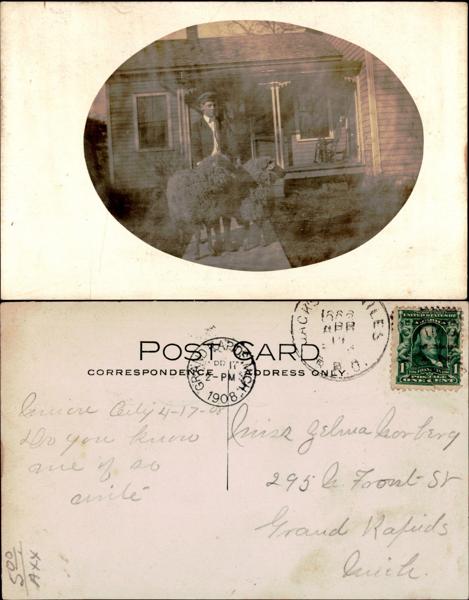 POST CARD
CORRESPONDENCE ADDRESS ONLY
GRAND RAPIDS, MICH.
2-PM
1908
JACKSON & NILES
APR
17
R.P.O.
UNITED STATES OF AMERICA
1 1
POSTAGE
ONE CENT
City 4-17-08
Do you know
me if so
write
Miss Zelma Norberg
295 N Front St
Grand Rapids
Mich.
500
AXX